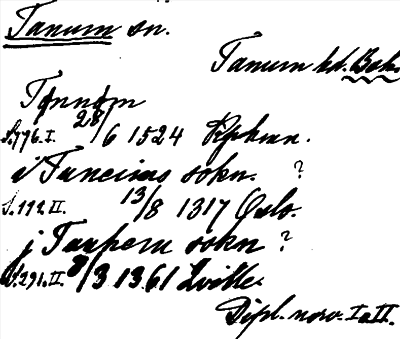 Tanum sn.
Tanum hd. Boh.
Tønnøm
S.776.I. 28/6 1524 Kphvn.
i Tuneims sokn. ?
S.112 II. 13/8 1317 Oslo.
j Taupem sokn ?
S.291.II. 8/3 1361 Lville.
Dipl. norv. I o II.